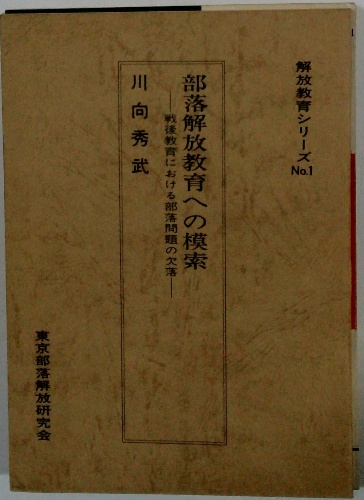 解放教育シリーズ No.1
部落解放教育への模索
―戦後教育における部落問題の欠落―
川向秀武
東京部落解放研究会